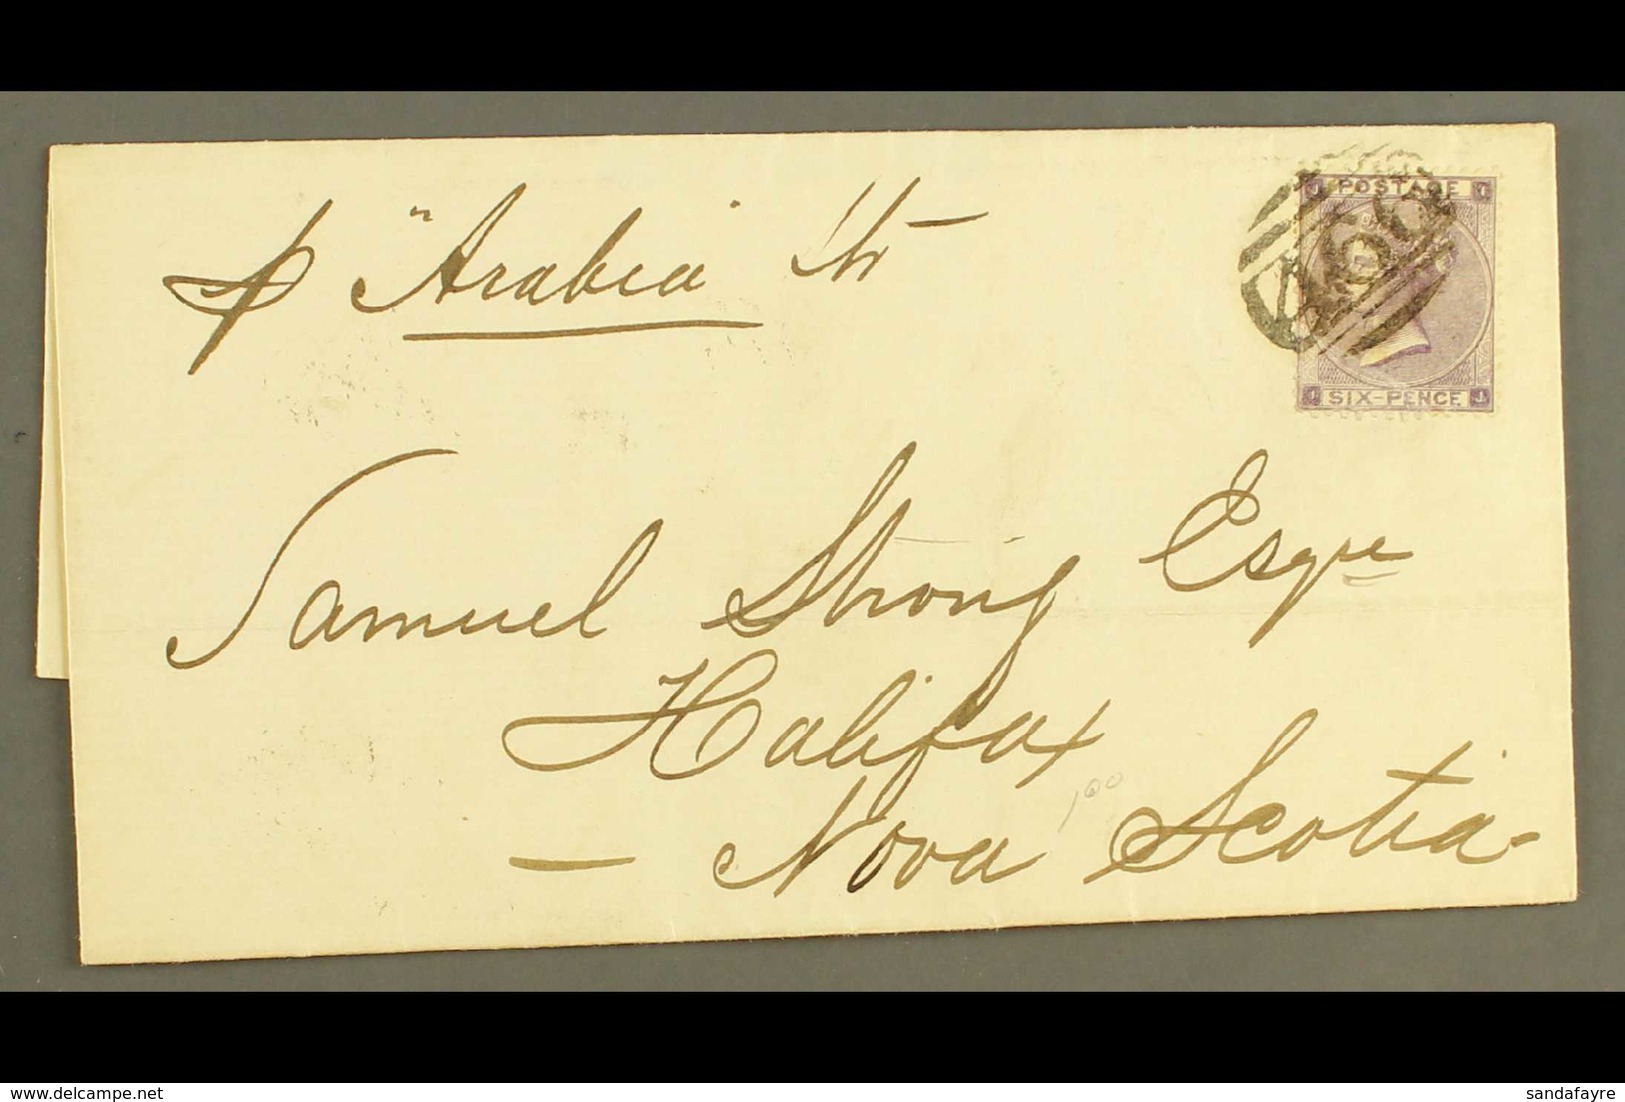 p "Arabia" Str
POSTAGE
A66
SIX-PENCE
Samuel Strong Esqre
Halifax
— Nova Scotia
100
www.delcampe.net
sandafayre